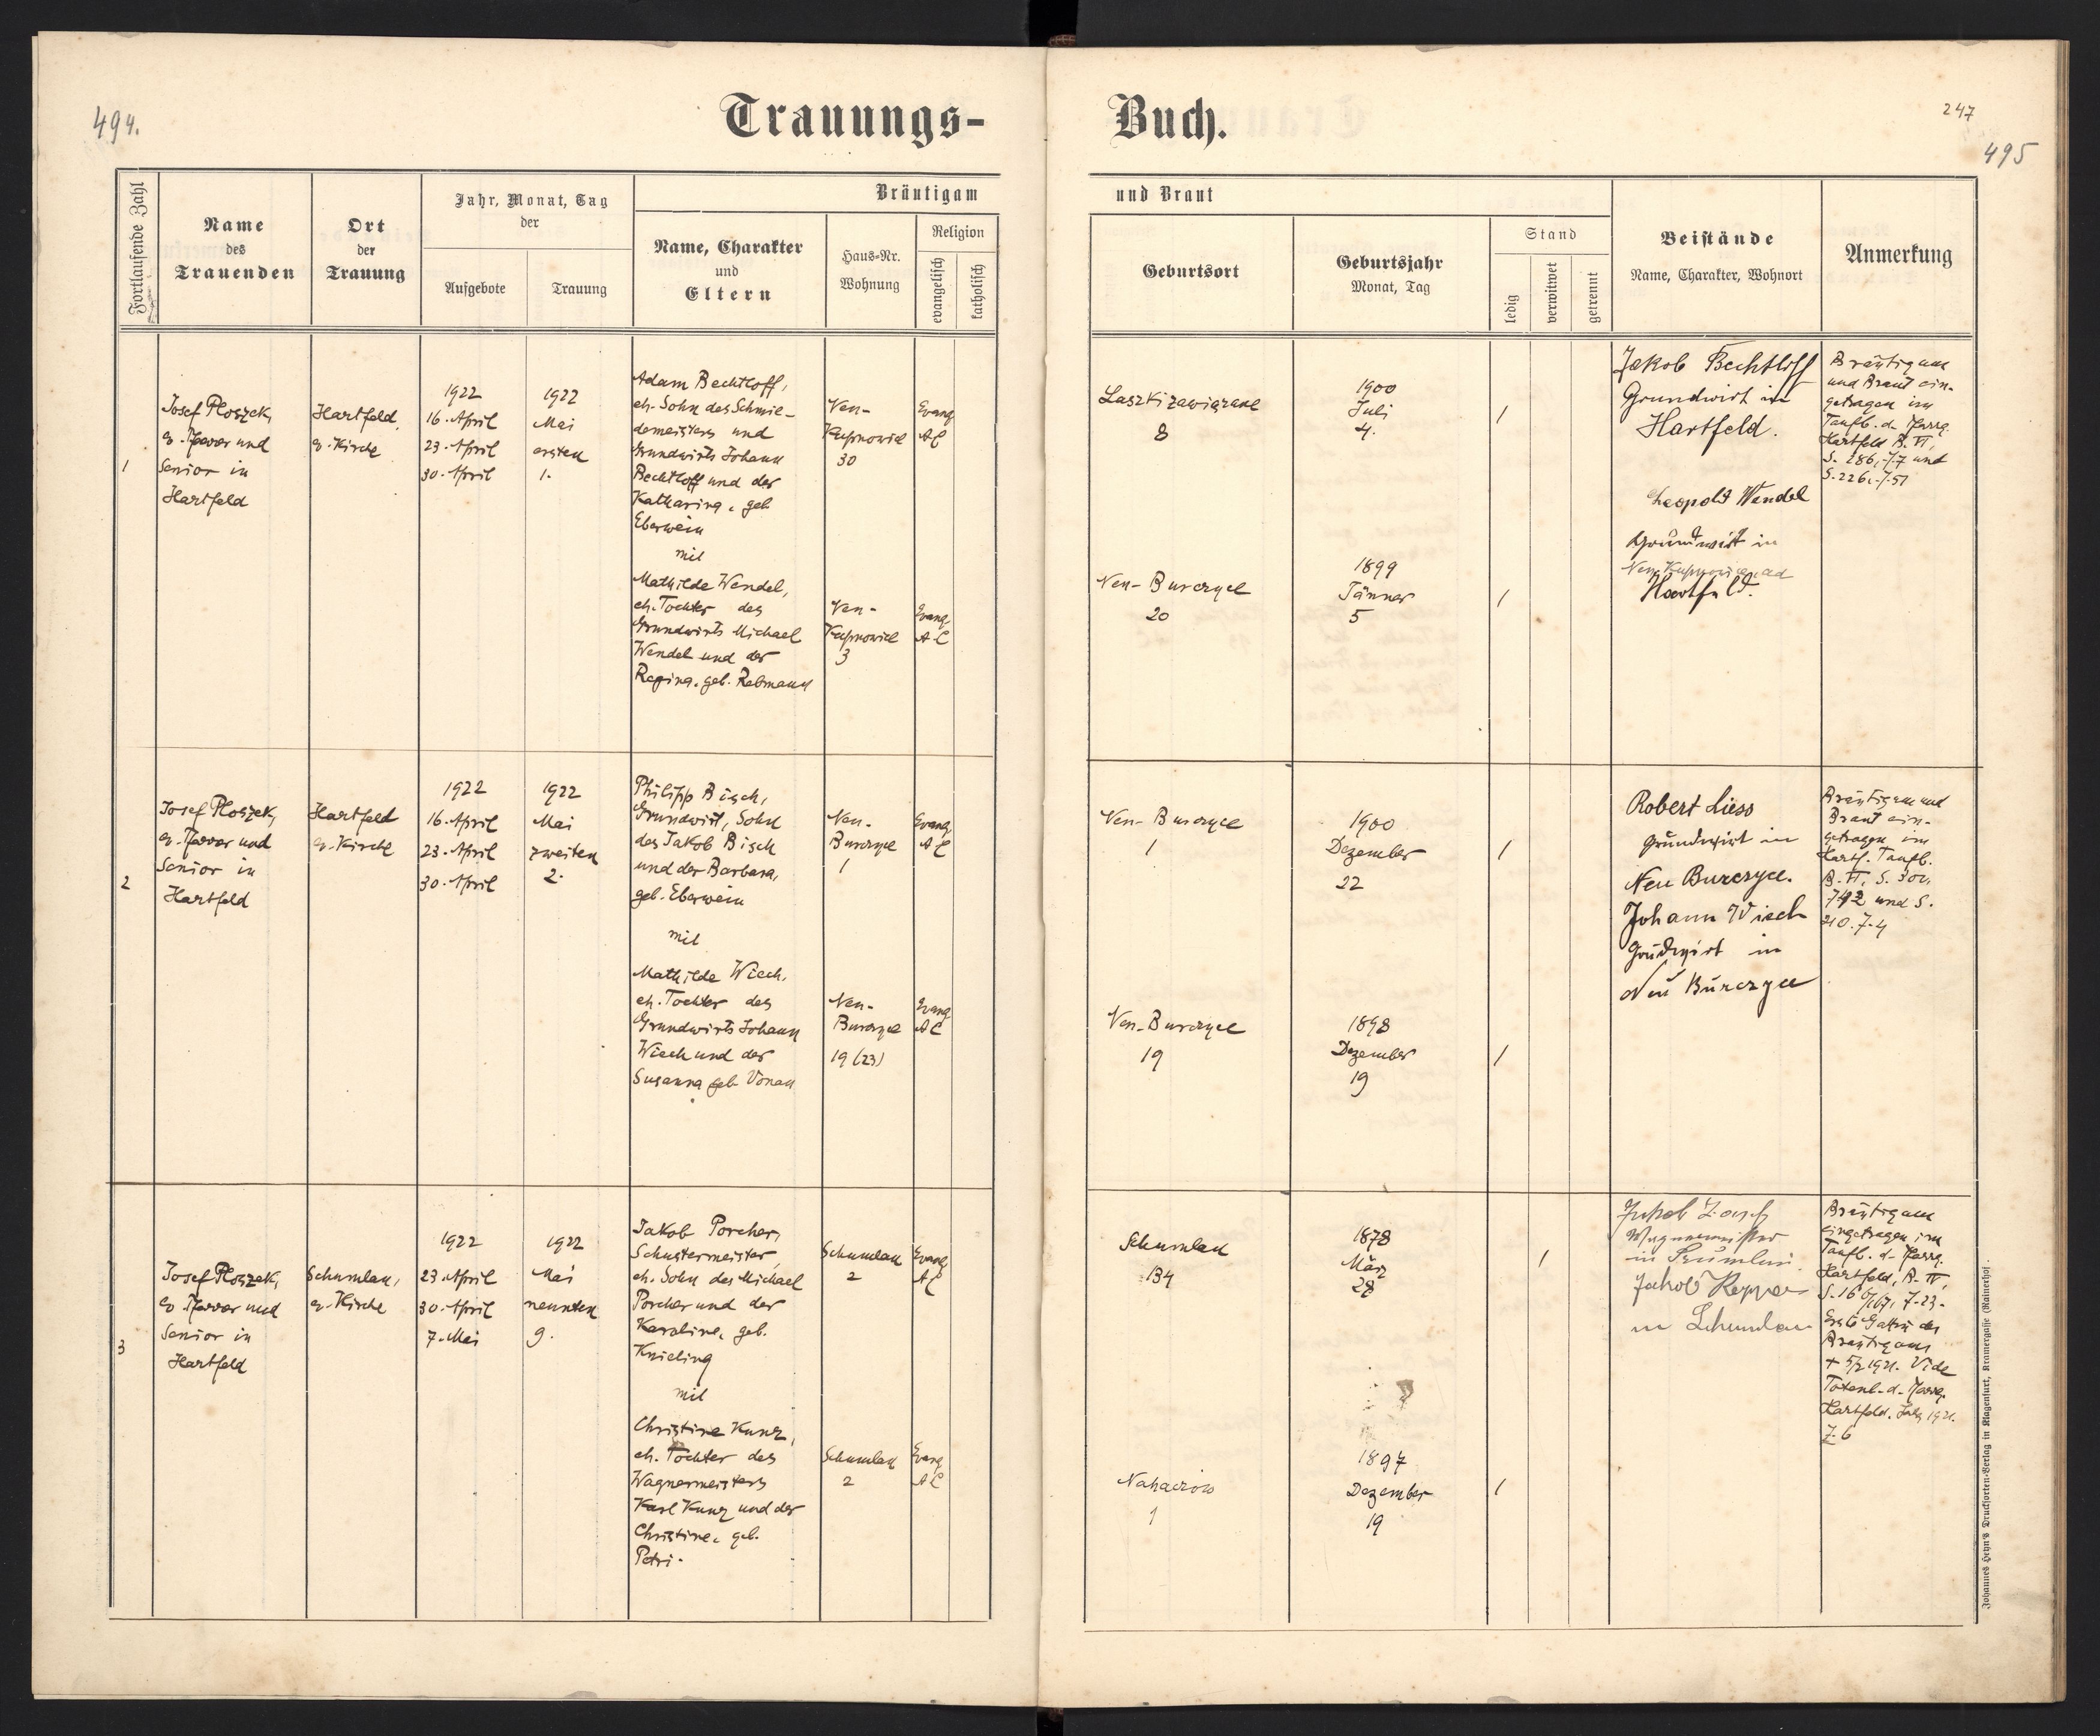 494.
Trauungs-
Buch.
247
495
Fortlaufende Zahl
Name
des
Trauenden
Ort
der
Trauung
Jahr, Monat, Tag
der
Aufgebote
Trauung
Bräutigam
Name, Charakter
und
Eltern
Haus-Nr.
Wohnung
Religion
evangelisch
katholisch
und Braut
Geburtsort
Geburtsjahr
Monat, Tag
Stand
ledig
verwitwet
getrennt
Beistände
Name, Charakter, Wohnort
Anmerkung
1
Josef Ploszek,
ev. Pfarrer und
Senior in
Hartfeld
Hartfeld,
ev. Kirche
1922
16. April
23. April
30. April
1922
Mai
ersten
1.
Adam Bechtloff,
eh. Sohn des Schmie-
demeisters und
Grundwirts Johann
Bechtloff und der
Katharina, geb.
Eberwein
mit
Mathilde Wendel,
eh. Tochter des
Grundwirts Michael
Wendel und der
Regina, geb. Rebmann
Neu-
Kupnowice
30
Neu-
Kupnowice
3
Evang.
AC
Evang.
AC
Laszki zawiązane
8
Neu-Burczyce
20
1900
Juli
4.
1899
Jänner
5
/
/
Jakob Bechtloff
Grundwirt in
Hartfeld.
Leopold Wendel
Grundwirt in
Neu Kupnowice ad
Hartfeld.
Bräutigam
und Braut ein-
getragen im
Taufb. d. Pfarrg.
Hartfeld B. VI,
S. 286, 7.7 und
S. 226, 7.51
2
Josef Ploszek,
ev. Pfarrer und
Senior in
Hartfeld
Hartfeld
ev. Kirche
1922
16. April
23. April
30. April
1922
Mai
zweiten
2.
Philipp Bisch,
Grundwirt, Sohn
des Jakob Bisch
und der Barbara,
geb. Eberwein
mit
Mathilde Wiech,
eh. Tochter des
Grundwirts Johann
Wiech und der
Susanna geb. Vonau
Neu-
Burczyce
1
Neu-
Burczyce
19 (23)
Evang.
AC
Evang.
AC
Neu-Burczyce
1
Neu-Burczyce
19
1900
Dezember
22
1898
Dezember
19
/
/
Robert Liess
Grundwirt in
Neu Burczyce.
Johann Wiech
Grudwirt in
Neu Burczyce
Bräutigam und
Braut ein-
getragen im
Hartf. Taufb.
B. VI, S.
und S.
210. 7.4
3
Josef Ploszek,
ev. Pfarrer und
Senior in
Hartfeld
Schumlau,
ev. Kirche
1922
23. April
30. April
7. Mai
1922
Mai
neunten
9.
Jakob Porcher,
Schustermeister,
eh. Sohn des Michael
Porcher und der
Karoline, geb.
Knieling
mit
Christine Kunz,
eh. Tochter des
Wagnermeisters
Karl Kunz und der
Christine, geb.
Petri.
Schumlau
2
Schumlau
2
Evang.
AC
Evang.
AC
Schumlau
134
Nahaczow
1
1878
März
28
1897
Dezember
19
/
/
Jakob
Wagnermeister
in
Jakob Kepper
in Schumlau
Bräutigam
eingetragen im
Taufb. d. Pfarrg.
Hartfeld, B. IV,
S. 7.23.
Erste Gattin des
Bräutigams
+ 1921. Vide
Totenb. d. Pfarrg.
Hartfeld. Jahrg. 1921.
Z. 6
Johannes Heyn's Drucksorten-Verlag in Klagenfurt, Kramergasse (Rainerhof).